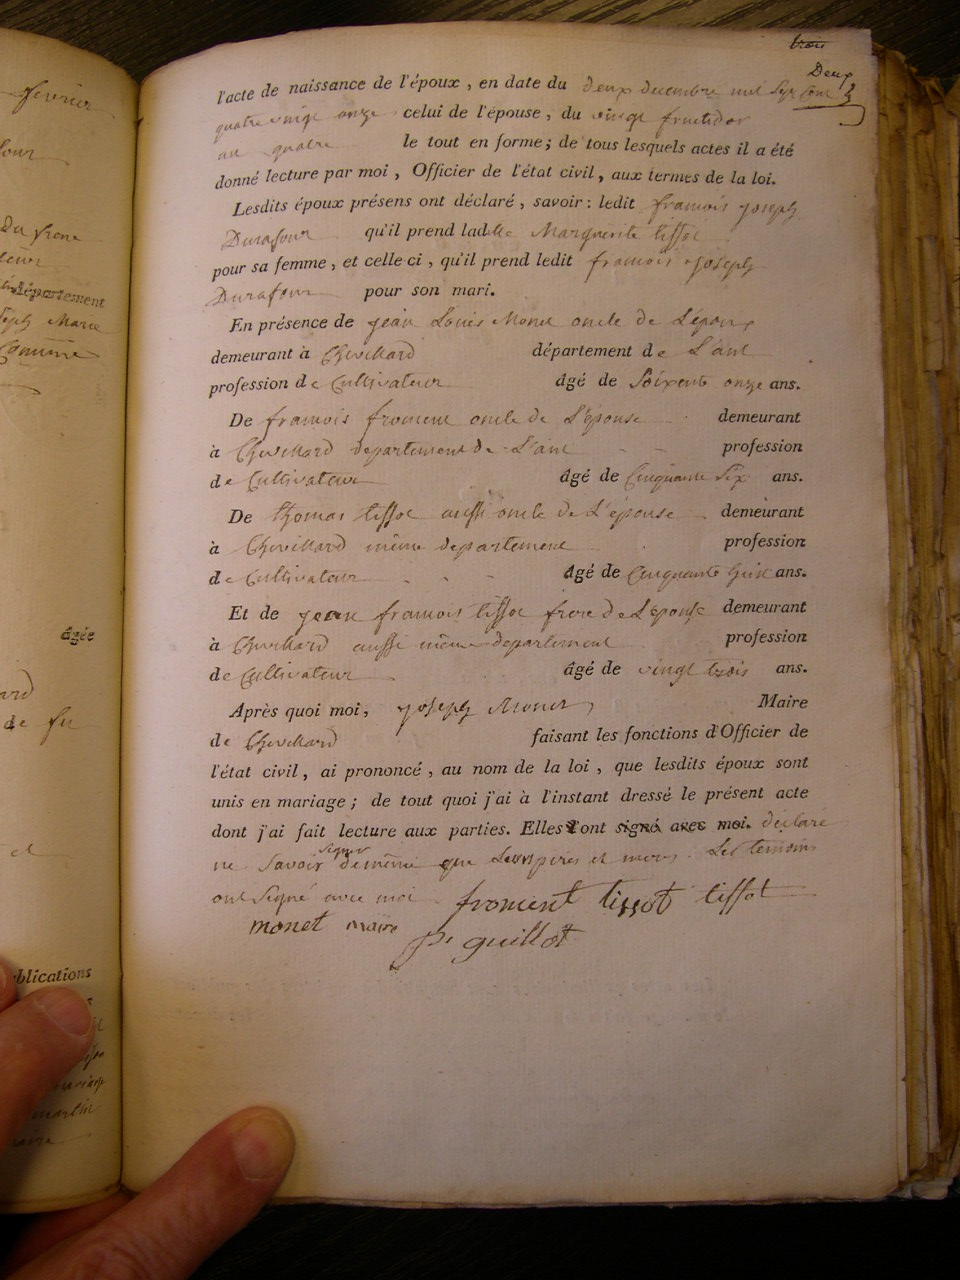 trois
Deux
l'acte de naissance de l'époux, en date du deux decembre mil sept cent
quatre vingt onze celui de l'épouse, du vingt fructidor
an quatre le tout en forme; de tous lesquels actes il a été
donné lecture par moi, Officier de l'état civil, aux termes de la loi.
Lesdits époux présens ont déclaré, savoir: ledit francois joseph
Durafour qu'il prend ladite Marguerite tissot
pour sa femme, et celle-ci, qu'il prend ledit francois joseph
Durafour pour son mari.
En présence de jean Louis Monet oncle de L'époux
demeurant à Chevillard département de L'ain
profession de Cultivateur âgé de Soixente onze ans.
De francois froment oncle de L'épouse demeurant
à Chevillard departement de L'ain profession
de Cultivateur âgé de Cinquante Six ans.
De thomas tissot aussi oncle de L'épouse demeurant
à Chevillard même departement profession
de Cultivateur âgé de Cinquante huit ans.
Et de jean francois tissot frere de L'épouse demeurant
à Chevillard aussi même departement profession
de Cultivateur âgé de vingt trois ans.
Après quoi moi, joseph Monet Maire
de Chevillard faisant les fonctions d'Officier de
l'état civil, ai prononcé, au nom de la loi, que lesdits époux sont
unis en mariage; de tout quoi j'ai à l'instant dressé le présent acte
dont j'ai fait lecture aux parties. Elles ont signé avec moi. déclaré
ne Savoir signer de même que Leurs peres et meres. Les temoins
ont Signé avec moi froment tissot tissot
monet maire
guillot
fevrier
département
Marie
Commune
âgée
de fu
et